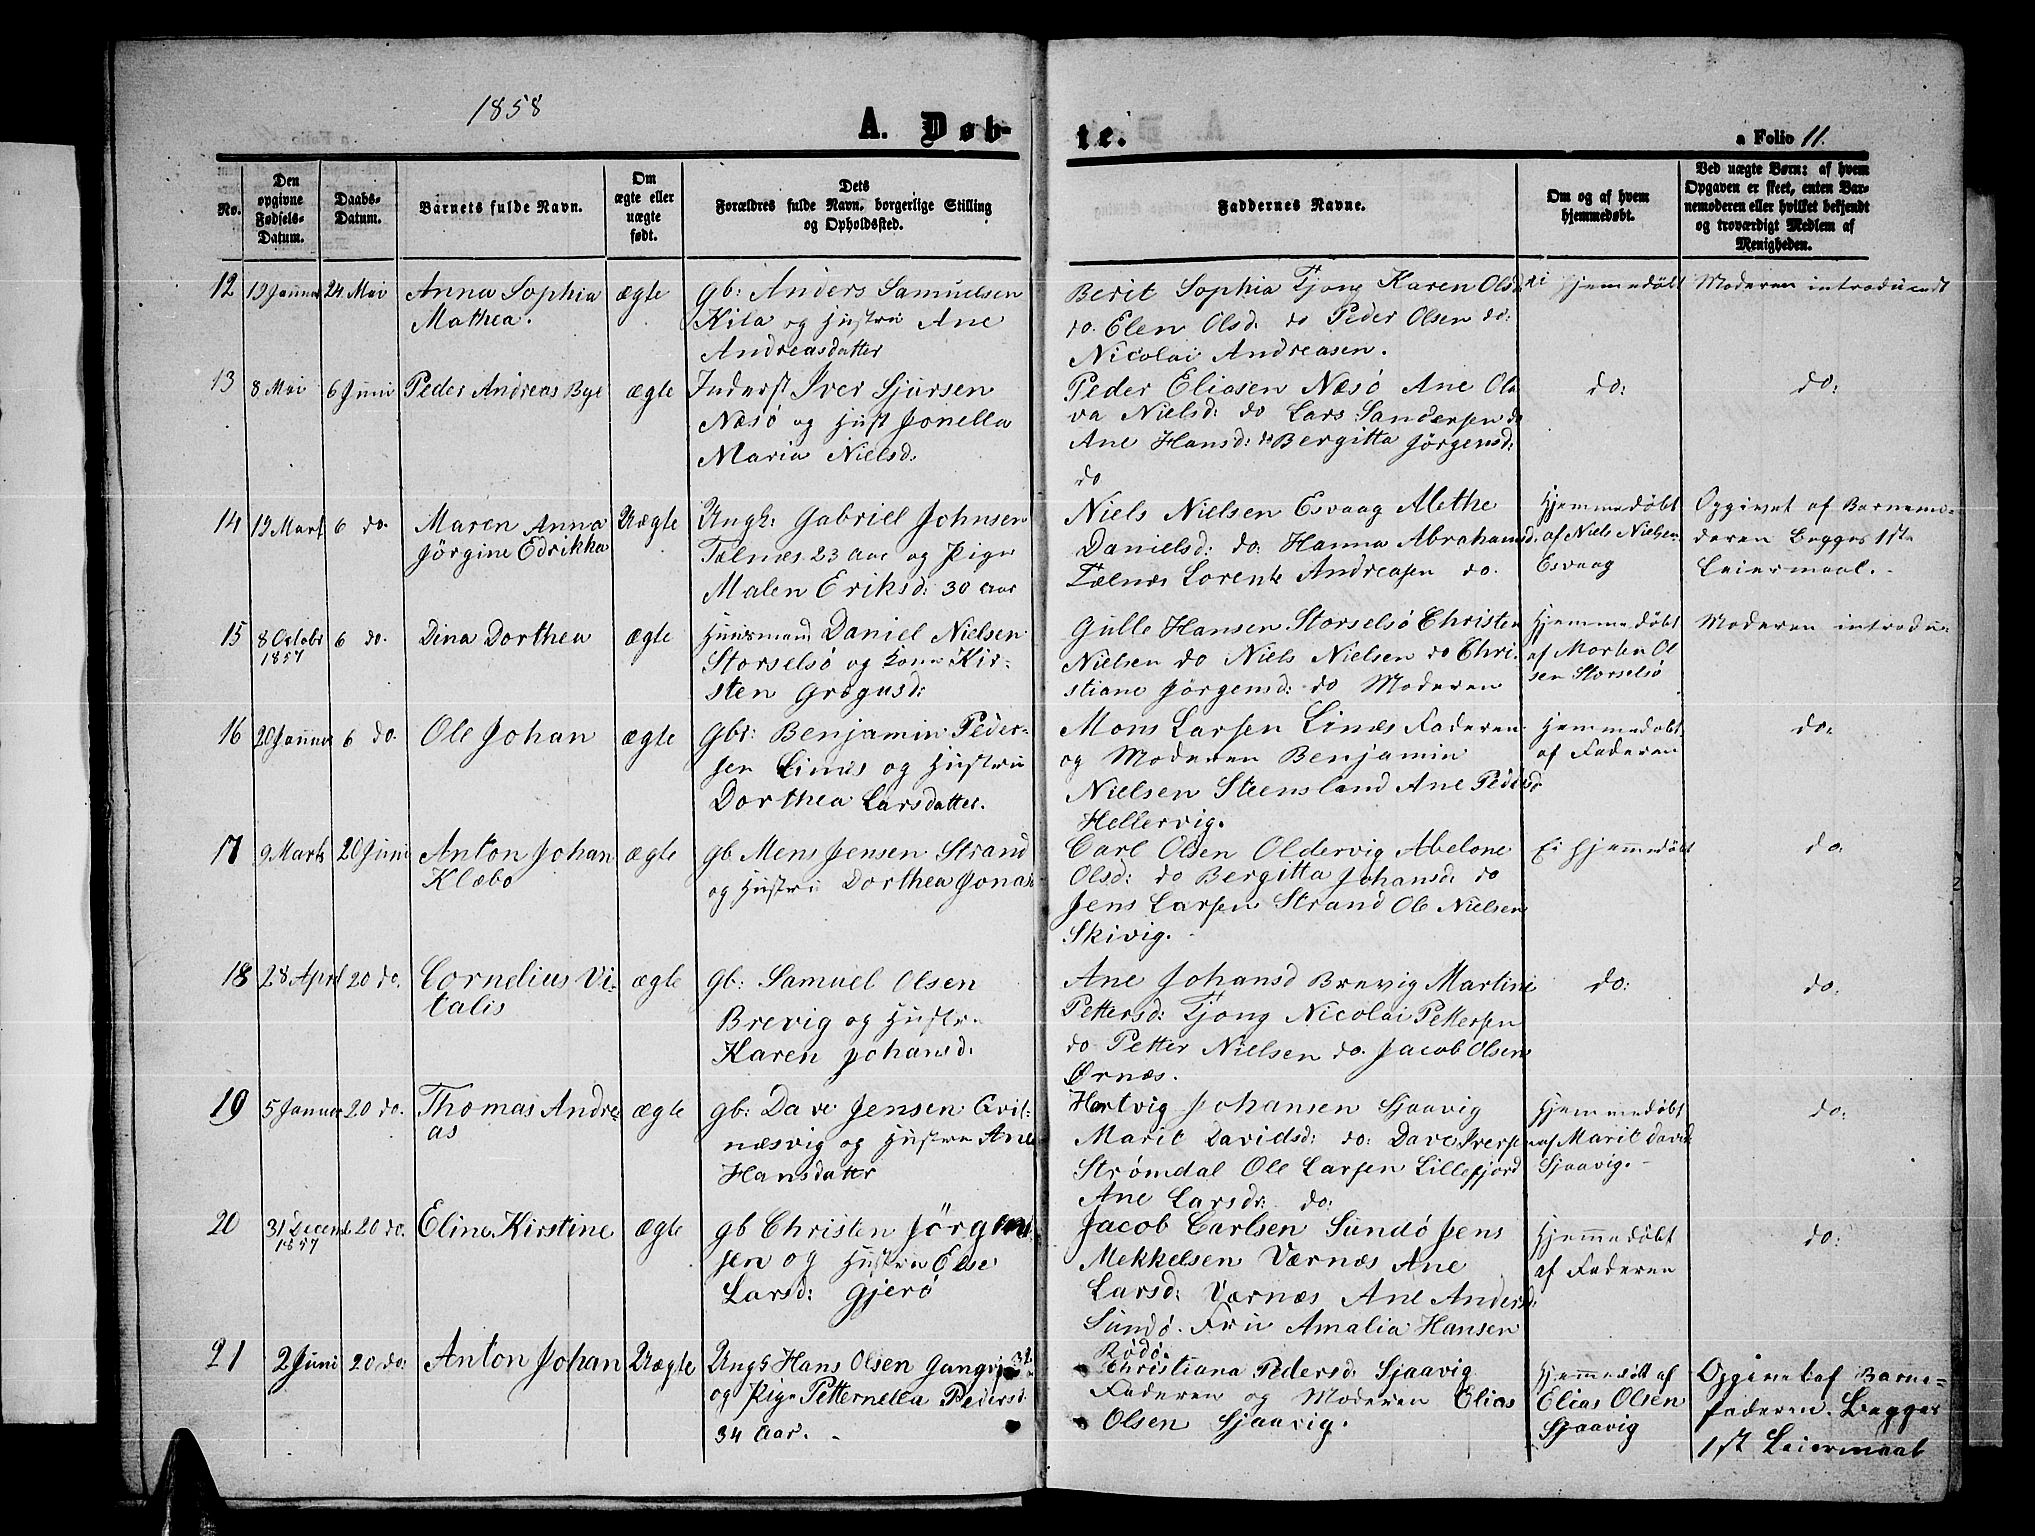 1858
A. Døb-
te.
a Folio 11.
No.
Den opgivne Fødsels-Datum.
Daabs-Datum.
Barnets fulde Navn.
Om ægte eller uægte født.
Dets Forældres fulde Navn, borgerlige Stilling og Opholdssted.
Faddernes Navne.
Om og af hvem hjemmedøbt.
Ved uægte Børn: af hvem Opgaven er skeet, enten Barnemoderen eller hvilket bekjendt og troværdigt Medlem af Menigheden.
12 19 Januar 24 Mai Anna Sophia ægte gb: Anders Samuelsen
Mathea. Kila og Hustru Ane
Andreasdatter
Berit Sophia Tjong Karen Olsd: ei Hjemmedøbt Moderen introduceret
do. Elen Olsd: do Peder Olsen do:
Nicolai Andreasen.
13 8 Mai 6 Juni Peder Andreas Byl ægte Inderst Iver Sjursen
Næsø og Hust Jonella
Maria Nielsd:
Peder Eliasen Næsø Ane Ola do: do:
va Nielsd: do Lars Sandersen do
Ane Hansd: do Bergitta Jörgensd:
do
14 12 Marts 6 do. Maren Anna Uægte Ungk: Gabriel Johnsen
Jörgine Edrikka Tælnæs 23 aar og Pige
Malen Eriksd: 30 aar
Niels Nielsen Esvaag Alethe Hjemmedøbt Opgivet af Barnemo-
Danielsd: do: Hanna Abrahamsd: af Niels Nielsen deren Begges 1ste
Tælnæs Lorents Andreasen do. Esvaag Leiermaal.
15 8 Octobr 6 do. Dina Dorthea ægte Huusmand Daniel Nielsen
1857 Storselsö og kone Kir-
sten Gregusd:
Gulle Hansen Storselsö Christen Hjemmedøbt Moderen introdu-
Nielsen do Niels Nielsen do Chri- af Morten Ol
stiane Jörgensd: do Moderen sen Storselsö
16 20 Januar 6 do. Ole Johan ægte gbr: Benjamin Peder-
sen Linæs og Hustru
Dorthea Larsdatter.
Mons Larsen Linæs Faderen Hjemmedøbt do:
og Moderen Benjamin af Faderen
Nielsen Steensland Ane Pedersd
Hellervig.
17 9 Marts 20 Juni Anton Johan ægte gb Mens Jensen Strand
Klæbo og Hustru Dorthea Jonasd
Carl Olsen Oldervig Abelone Ei Hjemmedøbt do:
Olsd: do Bergitta Johansd: do
Jens Larsen Strand Ole Nielsen
Skivig.
18 28 April 20 do. Cornelius Vi- ægte gb: Samuel Olsen
talis Brevig og Hustru
Karen Johansd:
Ane Johansd Brevig Martine do: do:
Pettersd: Tjong Nicolai Pettersen
do Petter Nielsen do. Jacob Olsen
Ørnæs.
19 5 Januar 20 do. Thomas Andre- ægte gb: Dave Jensen Qvit-
as næsvig og Hustru Ane
Hansdatter
Hartvig Johansen Sjaavig Hjemmedøbt do:
Marit Davidsd: do: Dave Iversen af Marit David
Strømdal Ole Larsen Lillefjord Sjaavig.
Ane Larsdr: do:
20 31 Decemb. 20 do. Eline Kirstine ægte gb Christen Jörgen
1857 sen og Hustru Else
Larsd: Gjerö
Jacob Carlsen Sundö Jens Hjemmedøbt do:
Mekkelsen Værnæs Ane af Faderen
Larsd: Værnæs Ane Andersd:
Sundö. Fru Amalia Hansen
Rödö.
21 2 Juni 20 do: Anton Johan Uægte Ungk Hans Olsen
og Pige Petternella Pedersd
34 Aar.
Christiana Pedersd: Sjaavig Hjemmedøbt af Opgivet af Barne-
Faderen og Moderen Elias Elias Olsen faderen. Begges
Olsen Sjaavig. Sjaavig 1st Leiermaal